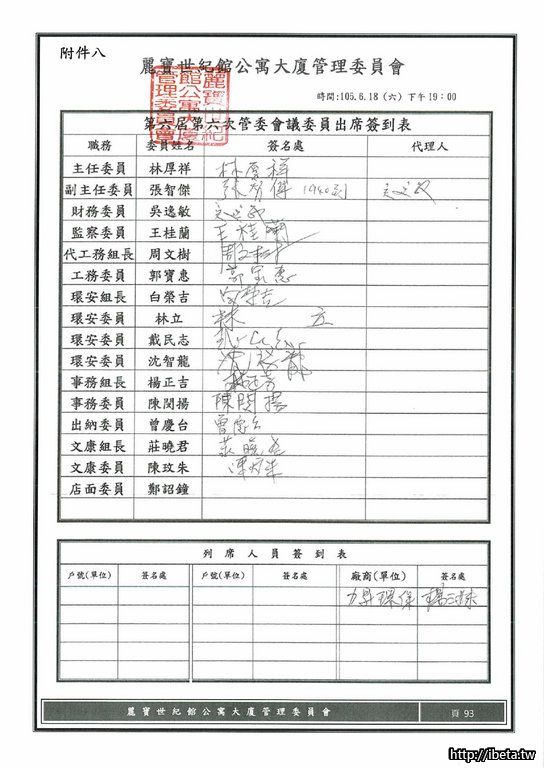 附件八
麗寶世紀館公寓大廈管理委員會
時間:105.6.18（六）下午19：00
麗寶世紀館公寓大廈管理委員會
第六屆第六次管委會議委員出席簽到表
職務 委員姓名 簽名處 代理人
主任委員 林厚祥 林厚祥
副主任委員 張智傑 張智傑
財務委員 吳逸敏
監察委員 王桂蘭 王桂蘭
代工務組長 周文樹 周文樹
工務委員 郭寶惠 郭寶惠
環安組長 白榮吉 白榮吉
環安委員 林立 林立
環安委員 戴民志
環安委員 沈智龍 沈智龍
事務組長 楊正吉
事務委員 陳閔揚 陳閔揚
出納委員 曾慶台 曾慶台
文康組長 莊曉君 莊曉君
文康委員 陳玟朱 陳玟朱
店面委員 鄭詔鐘
列席人員簽到表
戶號(單位) 簽名處 戶號(單位) 簽名處 廠商(單位) 簽名處
力昇環保
麗寶世紀館公寓大廈管理委員會 頁 93
http://ibeta.tw